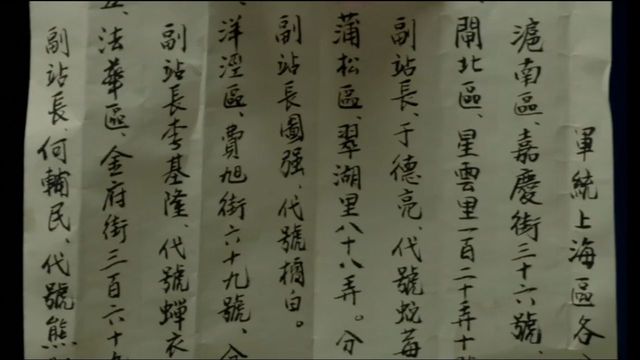 軍統上海區各
滬南區、嘉慶街三十六號
閘北區、星雲里一百二十弄十
副站長、于德亮、代號蛇莓
蒲松區、翠湖里八十八弄。分
副站長圖强、代號楠白。
洋涇區、費旭街六十九號、分
副站長李基隆、代號蝉衣
五、法華區、金府街三百六十九
副站長、何輔民、代號熊